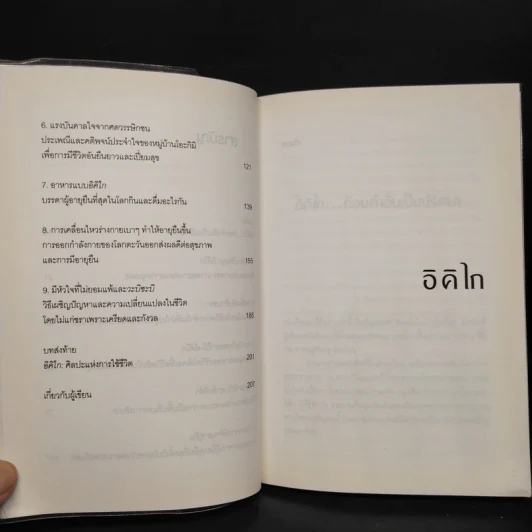 6. แรงบันดาลใจจากศตวรรษิกชน
ประเพณีและคติพจน์ประจำใจของหมู่บ้านโอะกิมิ
เพื่อการมีชีวิตอันยืนยาวและเปี่ยมสุข
121
7. อาหารแบบอิคิไก
บรรดาผู้อายุยืนที่สุดในโลกกินและดื่มอะไรกัน
139
8. การเคลื่อนไหวร่างกายเบาๆ ทำให้อายุยืนขึ้น
การออกกำลังกายของโลกตะวันออกส่งผลดีต่อสุขภาพ
และการมีอายุยืน
155
9. มีหัวใจที่ไม่ยอมแพ้และวะบิซะบิ
วิธีเผชิญปัญหาและความเปลี่ยนแปลงในชีวิต
โดยไม่แก่ชราเพราะเครียดและกังวล
185
บทส่งท้าย
อิคิไก: ศิลปะแห่งการใช้ชีวิต
201
เกี่ยวกับผู้เขียน
207
อิคิไก